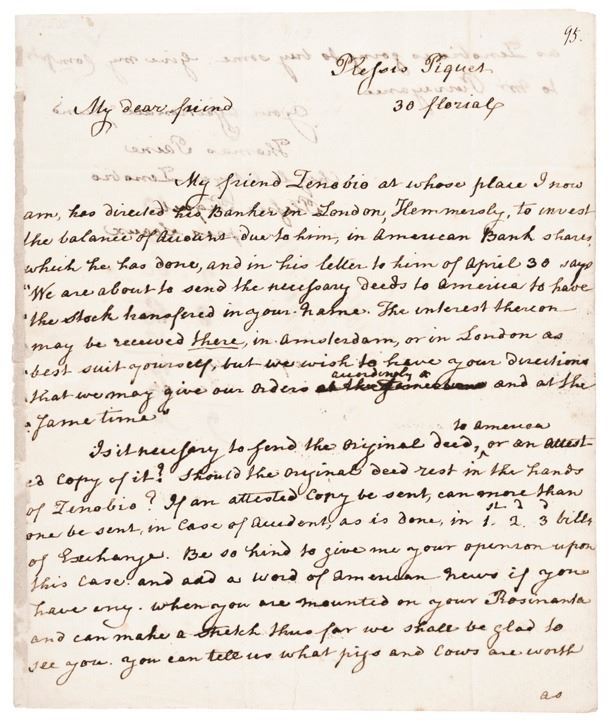 95.
Plessis Piquet
30 florial
My dear friend
My friend Zenobio at whose place I now
am, has directed his Banker in London, Hemmersly, to invest
the balance of accounts due to him, in American Bank shares,
which he has done, and in his letter to him of April 30 says
"We are about to send the necessary deeds to America to have
"the stock transfered in your name. The interest thereon
"may be received there, in Amsterdam, or in London as
"best suit yourself, but we wish to have your directions
"that we may give our orders accordingly and at the
"same time"
Is it necessary to send the original deed, to America or an attest-
ed copy of it? Should the original deed rest in the hands
of Zenobio? If an attested copy be sent, can more than
one be sent, in case of accident, as is done, in 1st 2d 3d bills
of Exchange. Be so kind to give me your openion upon
this case and add a word of American news if you
have eny. when you are mounted on your Rosinanta
and can make a stretch thus far we shall be glad to
see you. you can tell us what pigs and cows are worth
as